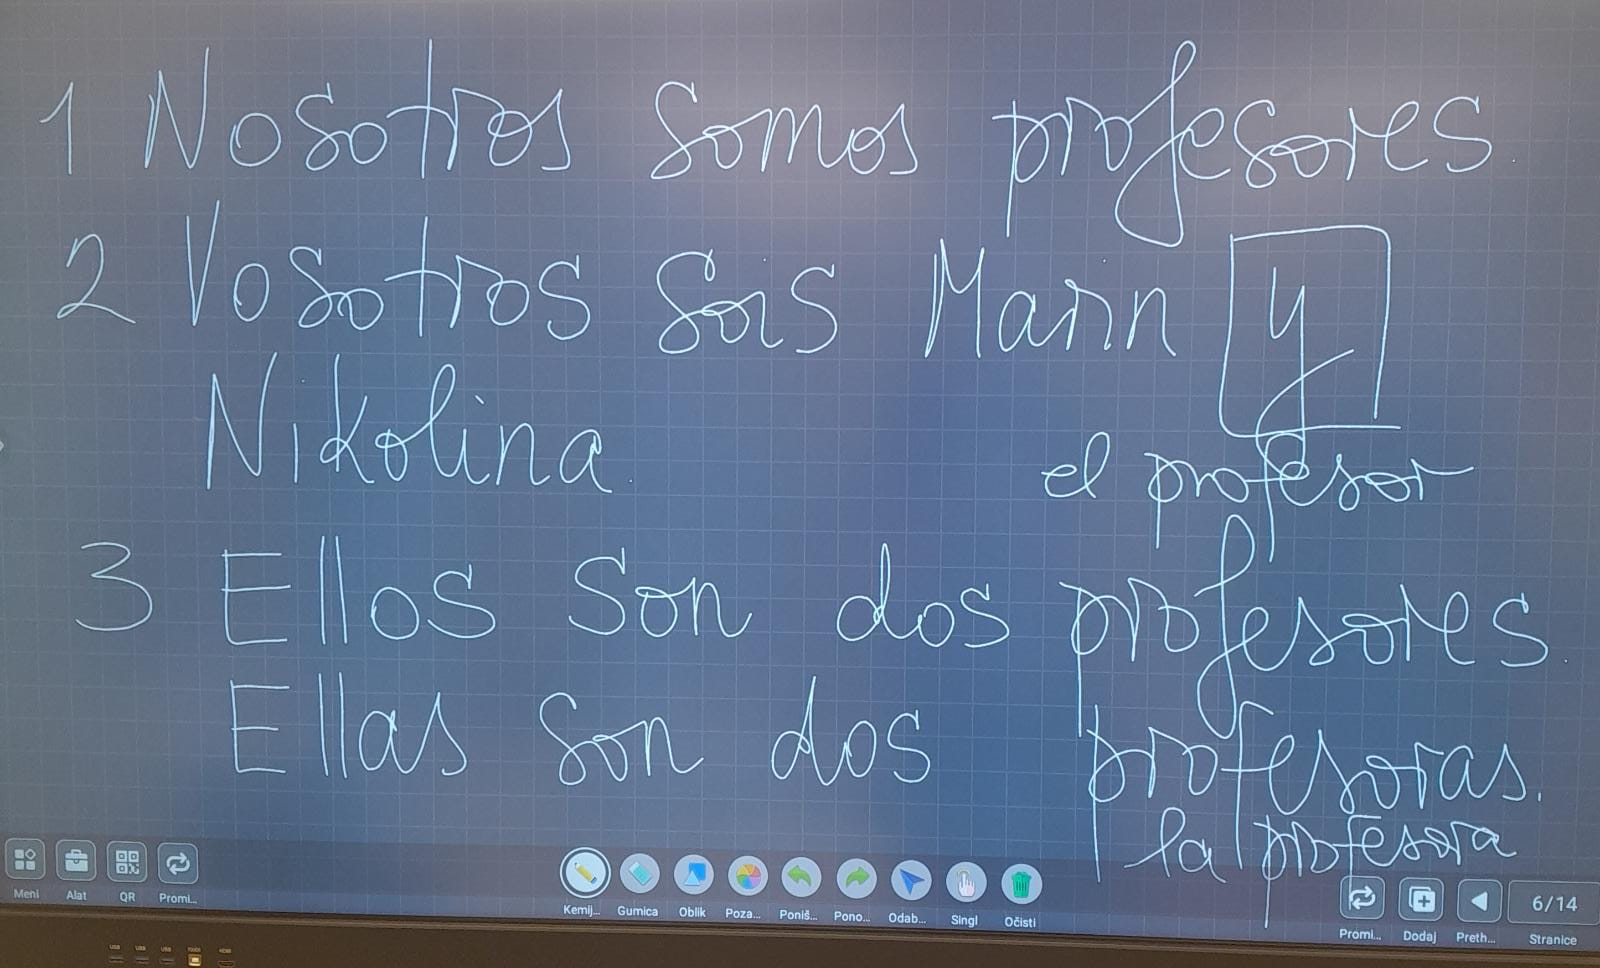 1 Nosotros somos profesores.
2 Vosotros sois Marin y
Nikolina.
el profesor
3 Ellos son dos profesores.
Ellas son dos profesoras.
la profesora
Meni Alat QR Promi... Kemij... Gumica Oblik Poza... Poniš... Pono... Odab... Singl Očisti Promi... Dodaj Preth... 6/14 Stranice
USB USB USB TOUCH HDMI